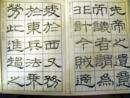 先帝之遺意
而議者謂為
計今賊適
於西又務
於東兵法乘
此進趨之